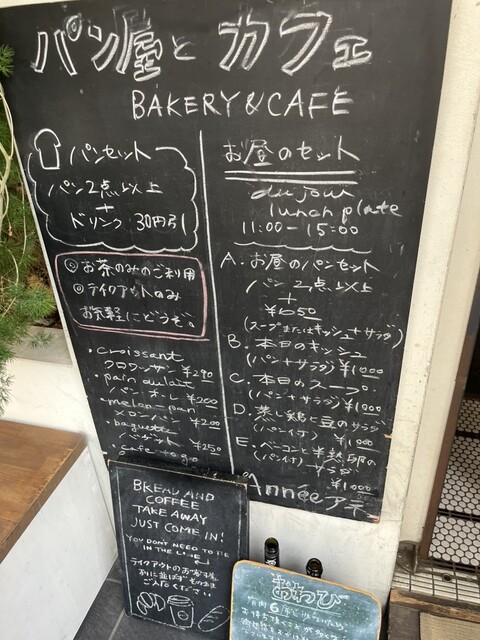 パン屋とカフェ
BAKERY & CAFE
パンセット
パン2点以上
+
ドリンク 30円引
お茶のみのご利用
テイクアウトのみ
お気軽にどうぞ。
・croissant
クロワッサン ¥290
・pain au lait
パン オ・レ ¥200
・melon-pan
メロンパン ¥200
・baguette
バゲット ¥250
cafe to go
お昼のセット
du jour
lunch plate
11:00-15:00
A. お昼のパンセット
パン 2点以上
+
¥1050
(スープまたはキッシュ+サラダ)
B. 本日のキッシュ
(パン+サラダ) ¥1000
C. 本日のスープ
(パン+サラダ) ¥1000
D. 蒸し鶏と豆のサラダ
(パン付) ¥1000
E. ベーコンと半熟卵の
(パン付) サラダ
¥1000
Année アネ
BREAD AND
COFFEE
TAKE AWAY
JUST COME IN!
YOU DON'T NEED TO BE
IN THE LINE
テイクアウトのお客様
列に並ばずそのまま
ご入店ください
おわび